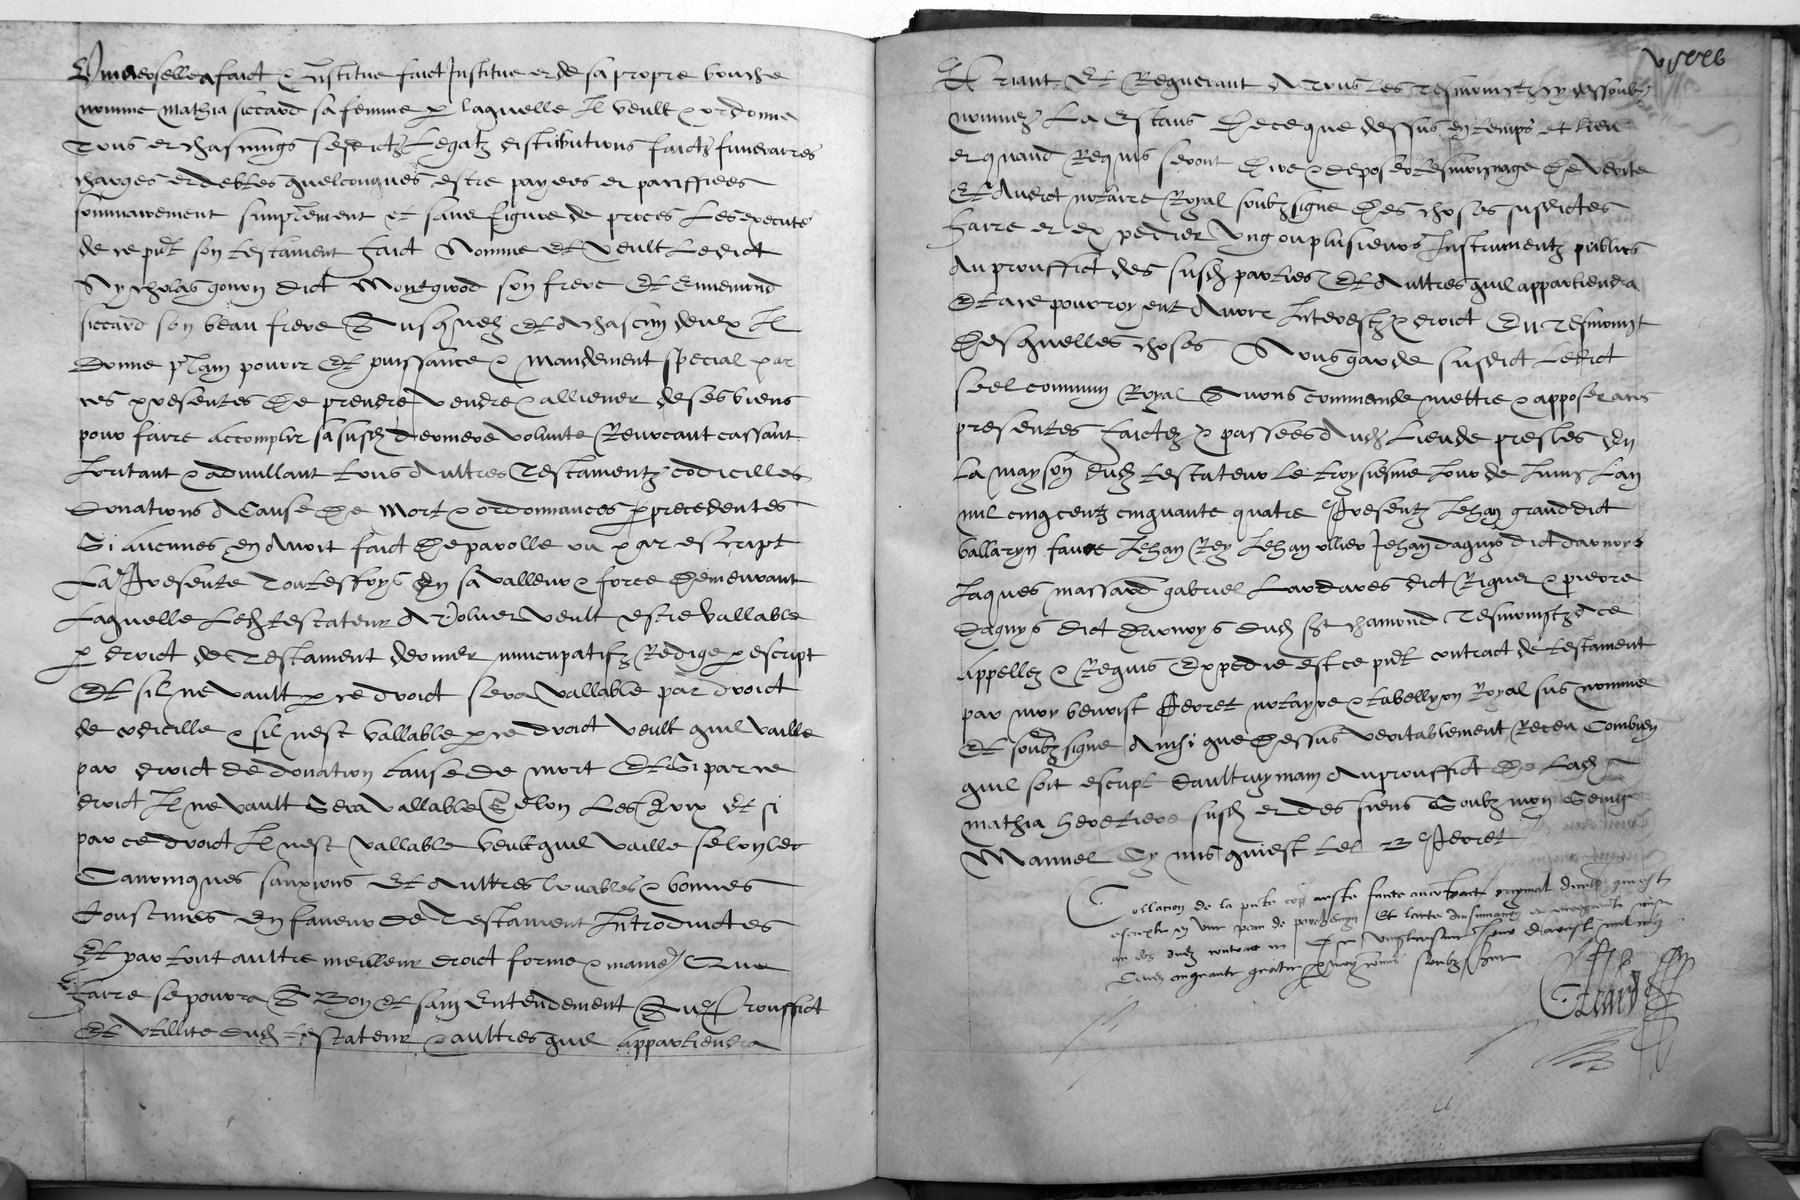 Universelle a faict & Institue faict Institue et de sa propre bouche
nomme mathia siccard sa femme p laquelle Il veult & ordonne
Tous et chascungs sesdictz Legatz distributions faictz funerarres
charges et debtes quelconques estre payees et pariffiees
sommairement simplement et sans figure de proces Les execute
de ce pnt son testament faict Nomme Et veult Ledict
Nycholas gonon dict Montgirod son frere Et Ennemond
siccard son beau frere Ausquelz Et A chascun deulx Il
Donne plain povoir Et puissance & mandement special par
ces presentes De prendre vendre & alliener de ses biens
pour faire accomplir sa susd derniere volunte Revocant cassant
Irritant & adnullant tous Aultres Testamentz codicilles
Donations A Cause De Mort & ordonnances p precedentes
Si aucunes en Avoit faict De parolle ou par escript
La Presente Toutessoys En sa valleur & force Demeurant
Laquelle Led testateur A Voluer veult estre Vallable
p droict de Testament dernier nuncupatifz Redige p escript
Et sil ne vault p ce droict sera vallable par droict
de codicille & sil nest vallable p ce droict veult quil vaille
par droict de donation cause de mort Et Si par ce
droict Il ne vault Sera Vallable Selon Les Loix Et si
par ce droict Il nest vallable veult quil vaille selon les
Canonicques sanxions Et Aultres louables & bonnes
Coustumes En faveur De Testament Introductes
Et par tout aultre meilleur droict forme & maniere Que
faire se pourra A Bon Et sain Entendement Au Prouffict
Et Utillite dud testateur & aultres quil appartiendra
Priant Et Requerant A Tous Les Tesmoingtz cy dessoubz
nommez La Estans De ce que dessus en temps et lieu
et quand Requis seront Dire & deposer tesmoignage De Verite
Et A Veret notaire Royal soubzsigne Des choses susdictes
Faire et expedier Ung ou plusieurs Instrumentz publics
Au prouffict des susd parties Et Aultres quil appartiendra
Et a ce pourroyent Avoir Interestz & droict En Tesmoingt
Desquelles choses Nous garde susdict Ledict
seel commun Royal Avons commande mettre & apposer a ces
presentes faictes & passees Aud Lieu de presles En
La mayson dud testateur le troysiesme Jour de Juing Lan
mil cinq centz cinquante quatre Presentz Jehan grand dict
Vallaryn faure Jehan Rey Jehan ollier Jehan daguis dict darnoys
Jaques massard gabriel Lardares dict Riguer & pierre
daguys dict darnoys dud snt chamond Tesmoingtz A ce
appellez & Requis Expedie est ce pnt contract de testament
par moy benoist Peyret notayre & tabellyon Royal sus nomme
Et soubzsigne Ainsi que Dessus veritablement Receu Combien
quil soit escript Daultruy main Au prouffict De Lad
mathia heretiere susd et des siens Soubz mon Seing
Manuel Cy mis qui est tel B Peyret
Collation de la pnte coppie a este faicte au original
escripte en une peau de parchemyn